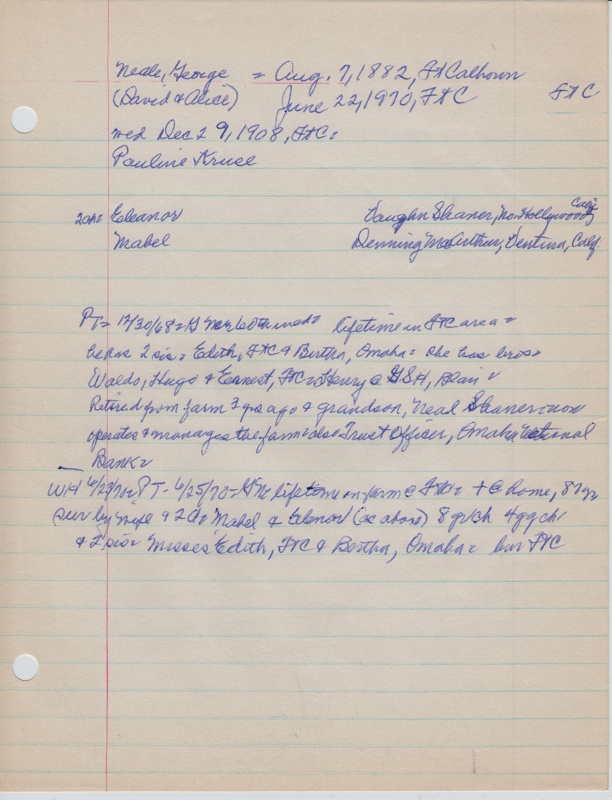 Neale, George = Aug. 7, 1882, Ft Calhoun
(David & Alice) June 22, 1970, Ft C Ft C
wed Dec 29, 1908, Ft C =
Pauline Kruse
2 ch = Eleanor Vaughn Shaner, No. Hollywood, Calif
Mabel Denning McArthur, Ventura, Calif
PT = 12/30/68 = G N 60th wed = lifetime in Ft C area =
he has 2 sis = Edith, Ft C & Bertha, Omaha = she has bros =
Waldo, Hugo & Earnest, Ft C = Henry @ GSH, Blair =
Retired from farm 3 yrs ago & grandson, Neal Shaner = now
operates & manages the farm = also Trust Officer, Omaha National
Bank =
WH 6/23/70 = PT - 6/25/70 = GN lifetime on farm @ Ft C = + @ home, 87 yr
sur by wife & 2 d = Mabel & Elenor (as above) 8 gr ch 4 gg ch
& 2 sis = Misses Edith, Ft C & Bertha, Omaha = bur Ft C